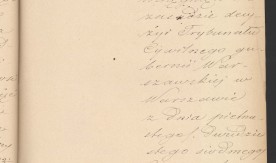 zasadzie decy-
zyi Trybunału
Cywilnego gu-
bernii War-
szawskiej w
Warszawie
z dnia piętna-
stego/dwudzie-
stego siódmego